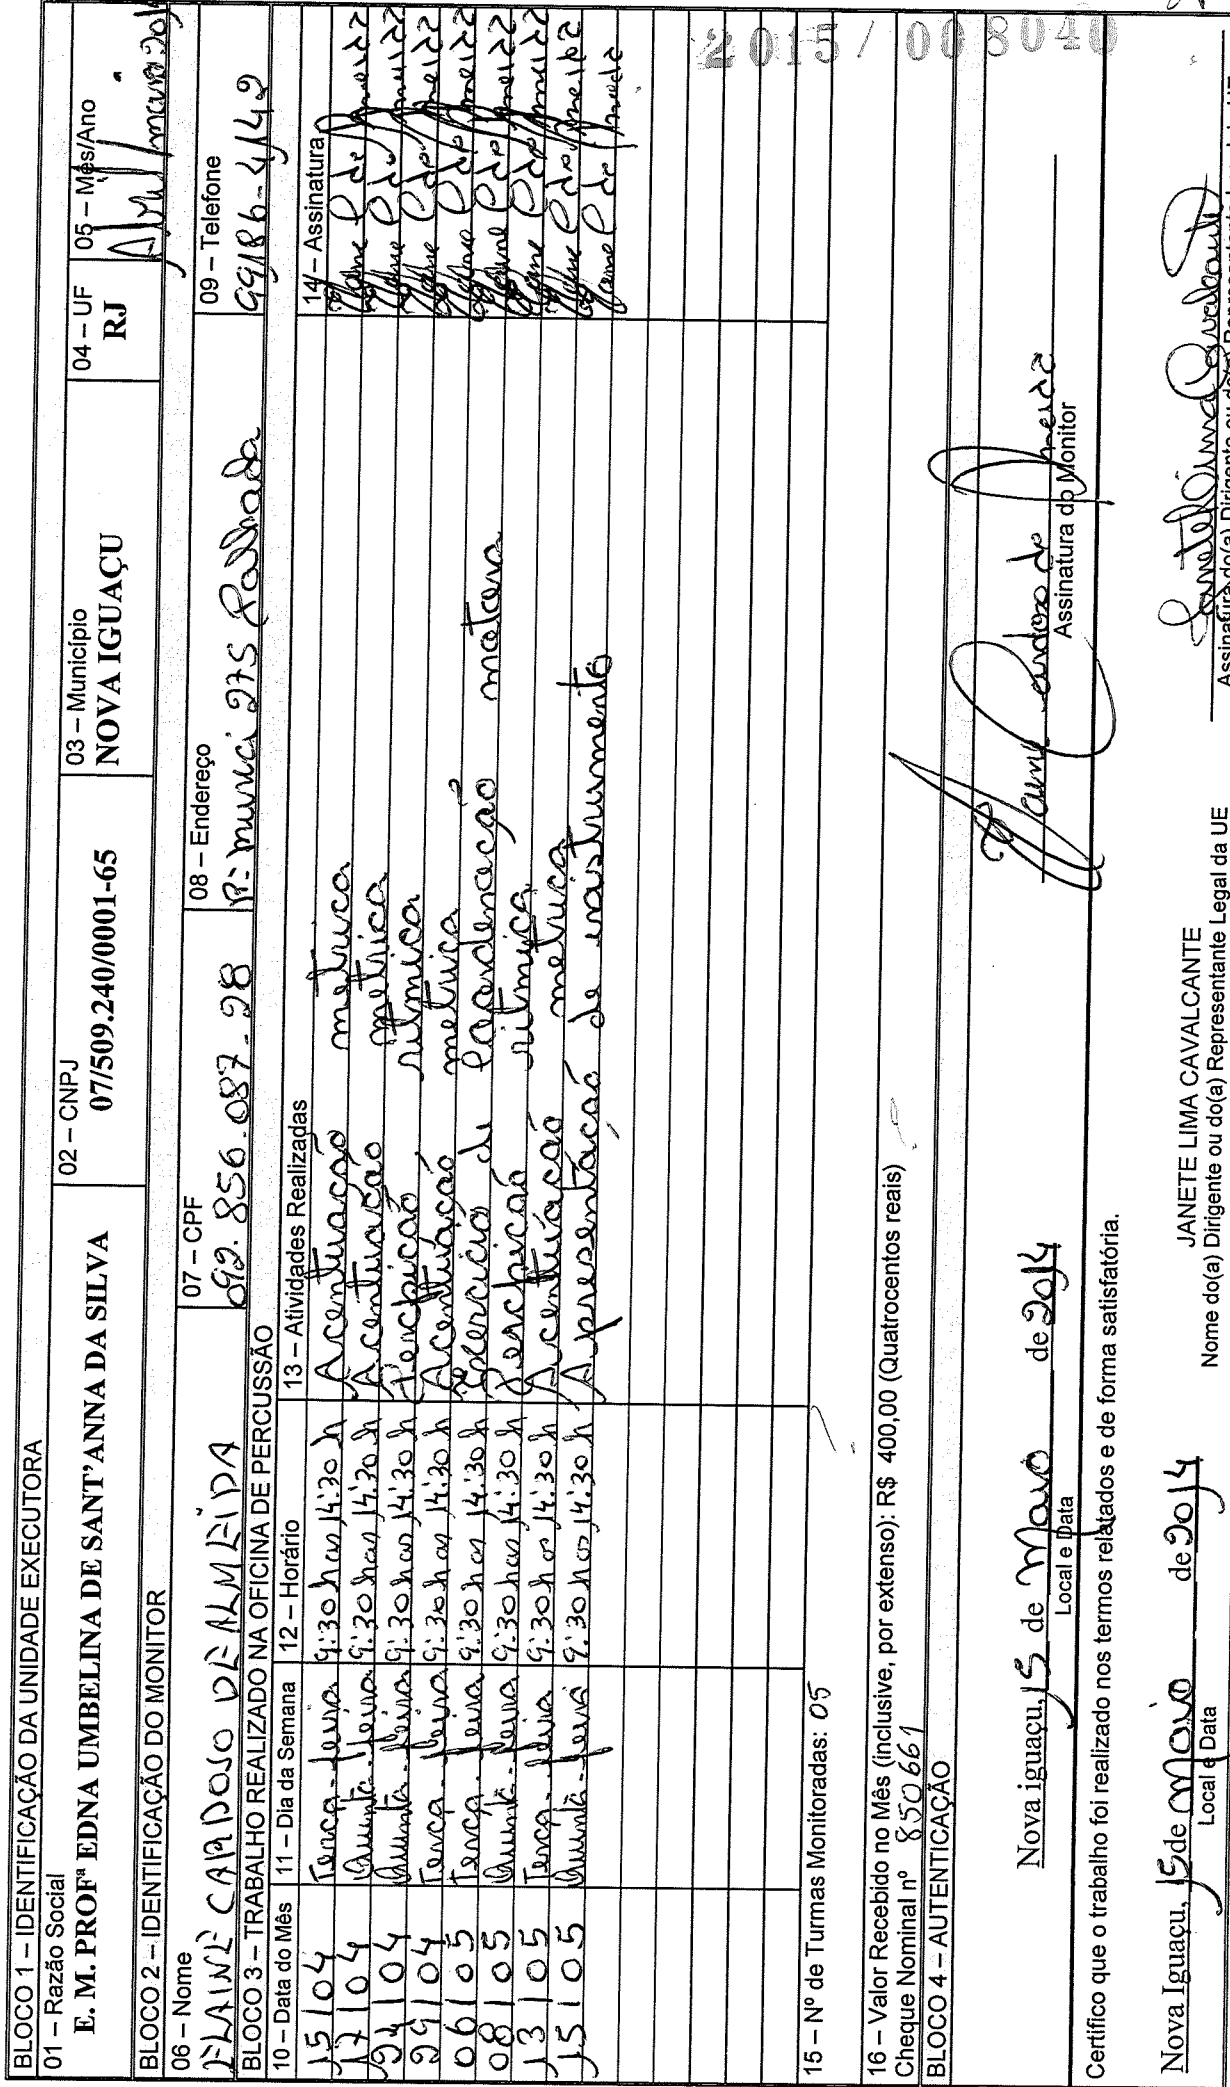 BLOCO 1 – IDENTIFICAÇÃO DA UNIDADE EXECUTORA
01 – Razão Social
E. M. PROFª EDNA UMBELINA DE SANT'ANNA DA SILVA
02 – CNPJ
07/509.240/0001-65
03 – Município
NOVA IGUAÇU
04 – UF
RJ
05 – Mês/Ano
BLOCO 2 – IDENTIFICAÇÃO DO MONITOR
06 – Nome
ELAINE CARDOSO DE ALMEIDA
07 – CPF
092.856.087-28
08 – Endereço
275
09 – Telefone
99186-4142
BLOCO 3 – TRABALHO REALIZADO NA OFICINA DE PERCUSSÃO
10 – Data do Mês 11 – Dia da Semana 12 – Horário 13 – Atividades Realizadas 14 – Assinatura
15/04 Terça-feira 9:30 h as 14:30 h Acentuação metrica
17/04 Quinta-feira 9:30 h as 14:30 h Acentuação metrica
24/04 Quinta-feira 9:30 h as 14:30 h Percepição ritmica
29/04 Terça-feira 9:30 h as 14:30 h Acentuação metrica
06/05 Terça-feira 9:30 h as 14:30 h Exercicio de Coordenação motora
08/05 Quinta-feira 9:30 h as 14:30 h ritmica
13/05 Terça-feira 9:30 h as 14:30 h Acentuação metrica
15/05 Quinta-feira 9:30 h as 14:30 h Apresentação de instrumento
15 – Nº de Turmas Monitoradas: 05
2015/ 008040
16 – Valor Recebido no Mês (inclusive, por extenso): R$ 400,00 (Quatrocentos reais)
Cheque Nominal nº 850661
BLOCO 4 – AUTENTICAÇÃO
Nova iguaçu, 15 de Maio de 2014
Local e Data
Assinatura do Monitor
Certifico que o trabalho foi realizado nos termos relatados e de forma satisfatória.
Nova Iguaçu, 15 de Maio de 2014
Local e Data
JANETE LIMA CAVALCANTE
Nome do(a) Dirigente ou do(a) Representante Legal da UE
Assinatura do(a) Dirigente ou do(a) Representante